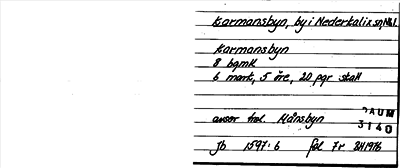 Karmansbyn, by i Nederkalix sn, Nbl.
Karmansbyn
8 bgmk
6 mark, 5 öre, 20 pgr skatt
avser trol. Månsbyn
DAUM
3140
Jb 1597:6 fol 7r 241976